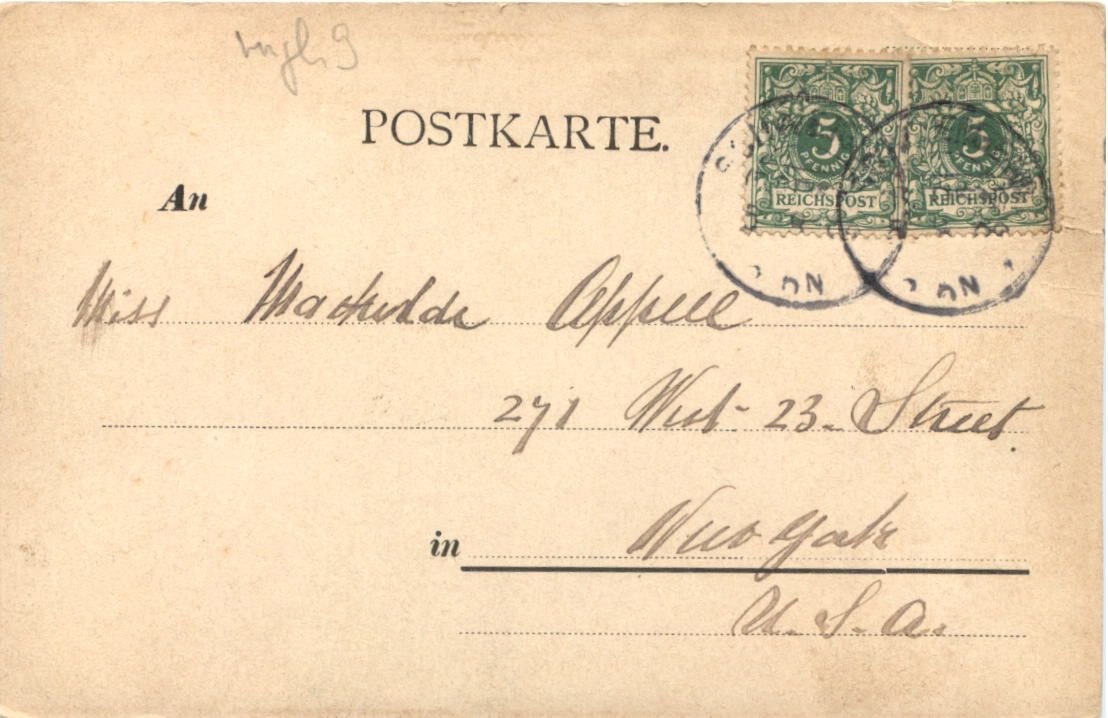 POSTKARTE.
5
PFENNIG
REICHSPOST
5
PFENNIG
REICHSPOST
An
Miss Mathilde Appell
271 West 23. Street.
in New York
U. S. A.